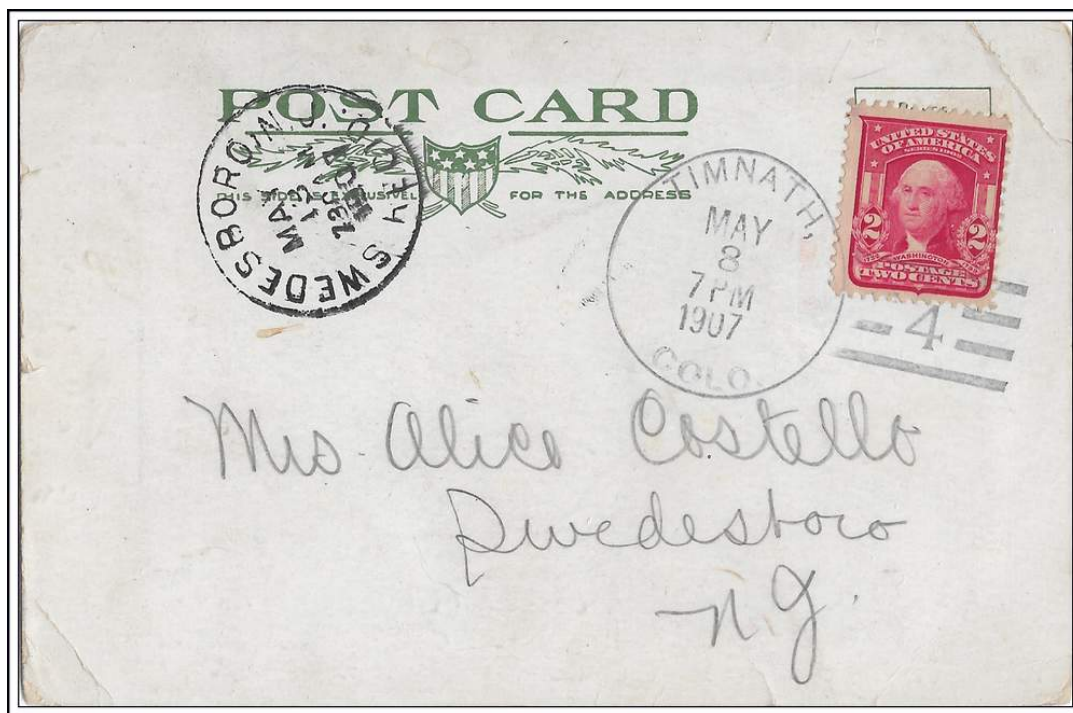 POST CARD
THIS SIDE IS EXCLUSIVELY FOR THE ADDRESS
SWEDESBORO, N.J.
MAY
12
REC'D
TIMNATH,
MAY
8
7 PM
1907
COLO.
4
UNITED STATES
OF AMERICA
SERIES 1902
2 2
1732 WASHINGTON 1799
POSTAGE
TWO CENTS
Mrs. Alice Costello
Swedesboro
N. J.